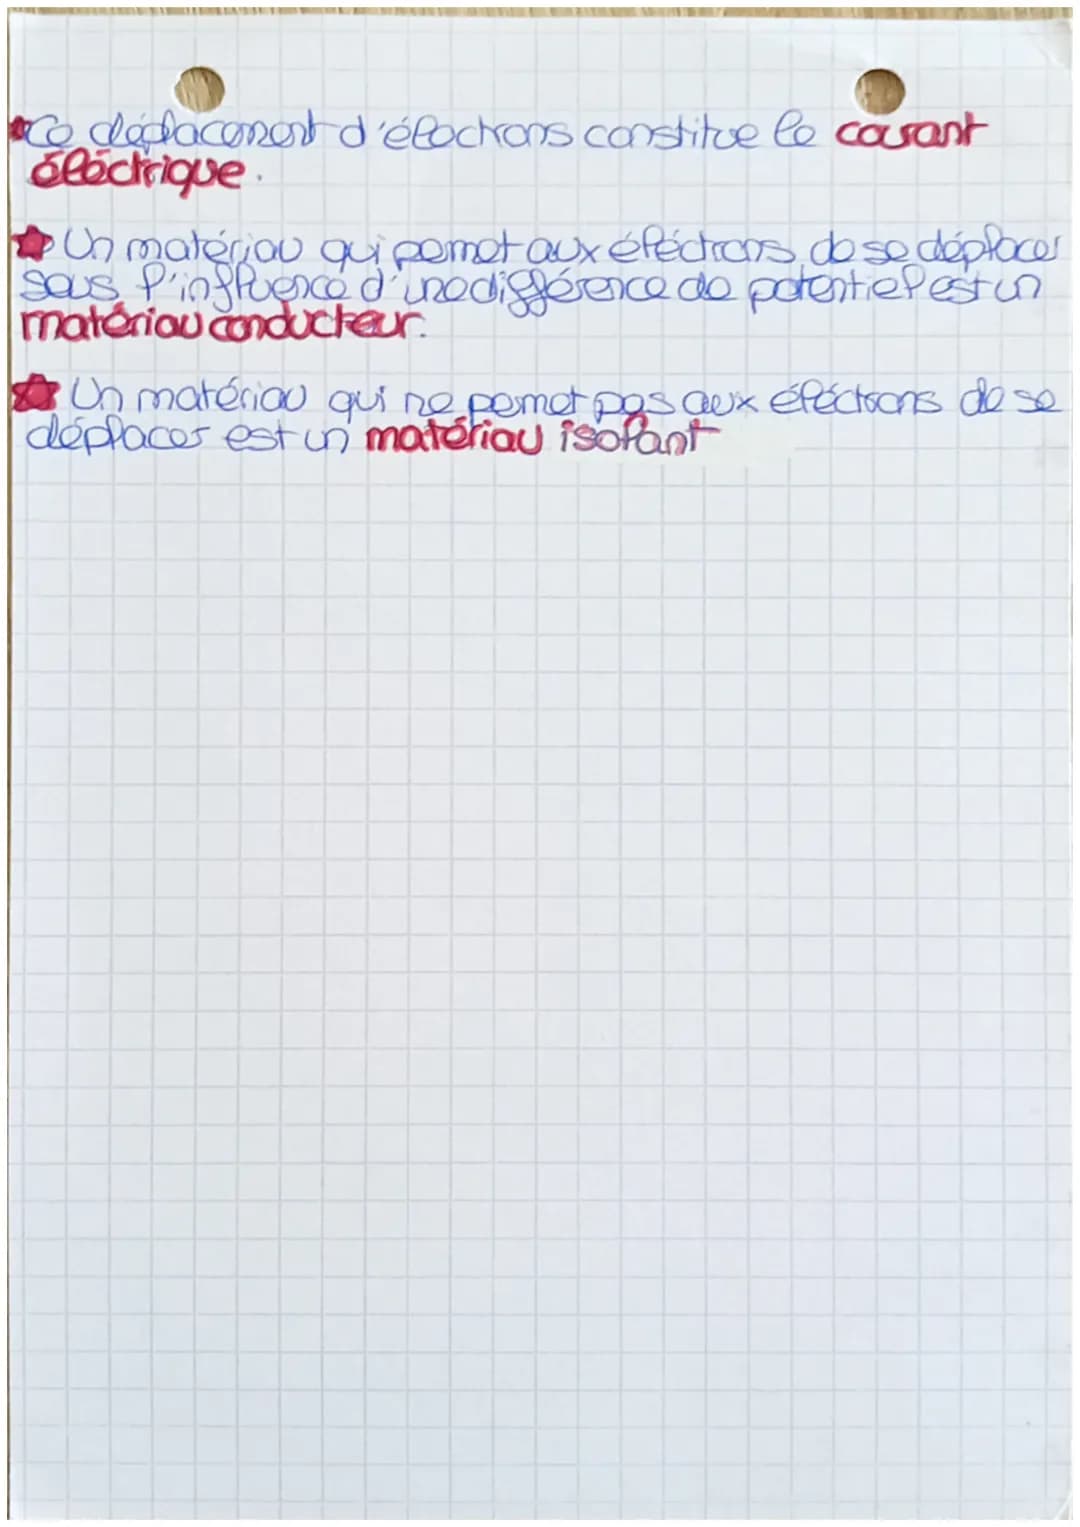 Ce déplacement d'électrons constitue le courant
éléctrique.
Un matériau qui permet aux éléctrons de se déplacer
sous l'influence d'une différence de potentiel est un
matériau conducteur.
Un matériau qui ne permet pas aux éléctrons de se
déplacer est un matériau isolant